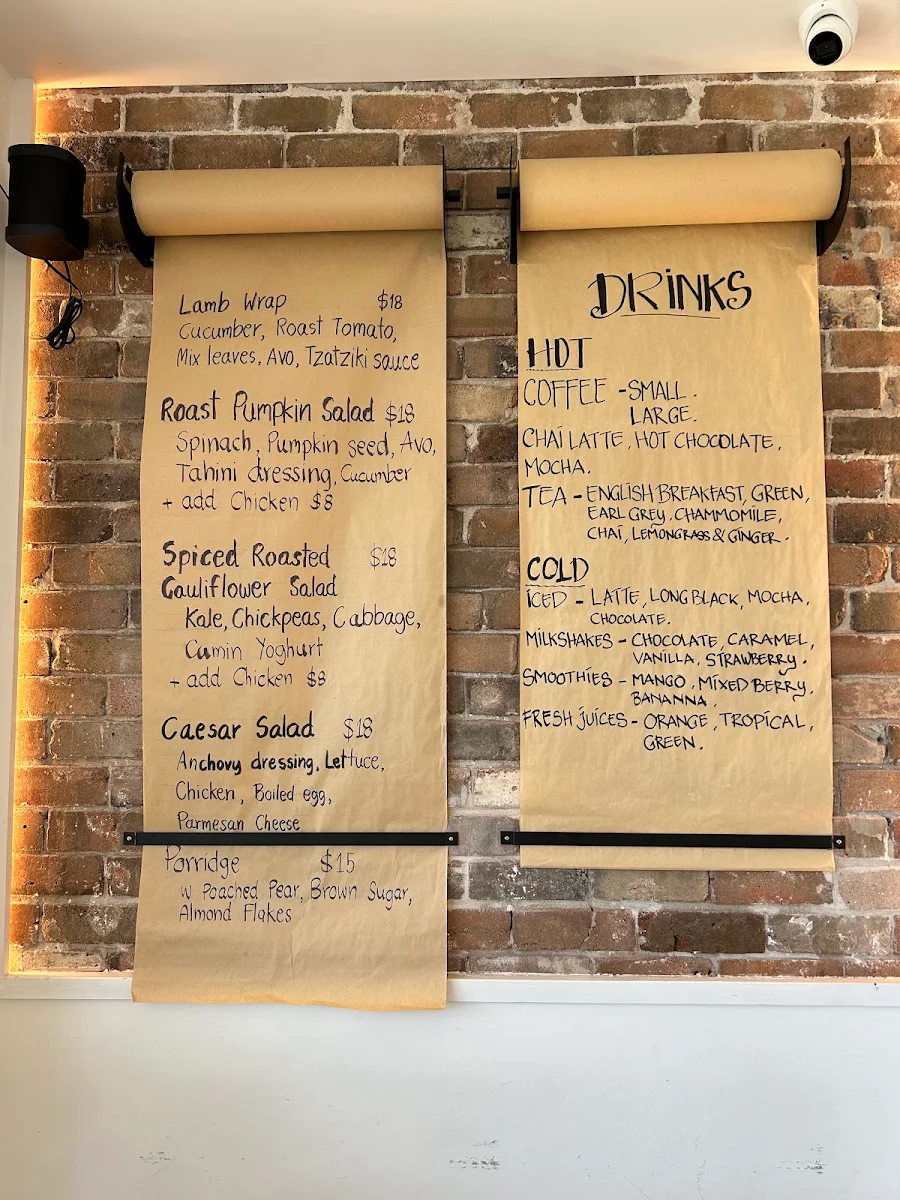 Lamb Wrap $18
Cucumber, Roast Tomato,
Mix leaves, Avo, Tzatziki sauce
Roast Pumpkin Salad $18
Spinach, Pumpkin seed, Avo,
Tahini dressing, Cucumber
+ add Chicken $8
Spiced Roasted $18
Cauliflower Salad
Kale, Chickpeas, Cabbage,
Cumin Yoghurt
+ add Chicken $8
Caesar Salad $18
Anchovy dressing, Lettuce,
Chicken, Boiled egg,
Parmesan Cheese
Porridge $15
w Poached Pear, Brown Sugar,
Almond Flakes
DRINKS
HOT
COFFEE - SMALL.
LARGE.
CHAI LATTE, HOT CHOCOLATE,
MOCHA.
TEA - ENGLISH BREAKFAST, GREEN,
EARL GREY, CHAMMOMILE,
CHAI, LEMONGRASS & GINGER.
COLD
ICED - LATTE, LONG BLACK, MOCHA,
CHOCOLATE.
MILKSHAKES - CHOCOLATE, CARAMEL,
VANILLA, STRAWBERRY.
SMOOTHIES - MANGO, MIXED BERRY,
BANANNA.
FRESH JUICES - ORANGE, TROPICAL,
GREEN.